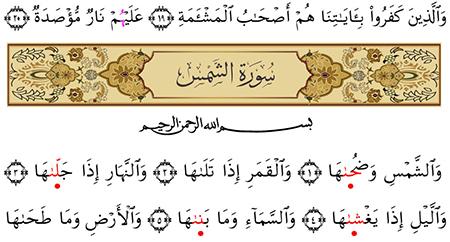 وَٱلَّذِينَ كَفَرُوا۟ بِـَٔايَـٰتِنَا هُمْ أَصْحَـٰبُ ٱلْمَشْـَٔمَةِ ﴿١٩﴾ عَلَيْهِمْ نَارٌ مُّؤْصَدَةٌۢ ﴿٢٠﴾
سُورَةُ الشَّمْسِ
بسم الله الرحمن الرحيم
وَٱلشَّمْسِ وَضُحَىٰهَا ﴿١﴾ وَٱلْقَمَرِ إِذَا تَلَىٰهَا ﴿٢﴾ وَٱلنَّهَارِ إِذَا جَلَّىٰهَا ﴿٣﴾
وَٱلَّيْلِ إِذَا يَغْشَىٰهَا ﴿٤﴾ وَٱلسَّمَآءِ وَمَا بَنَىٰهَا ﴿٥﴾ وَٱلْأَرْضِ وَمَا طَحَىٰهَا